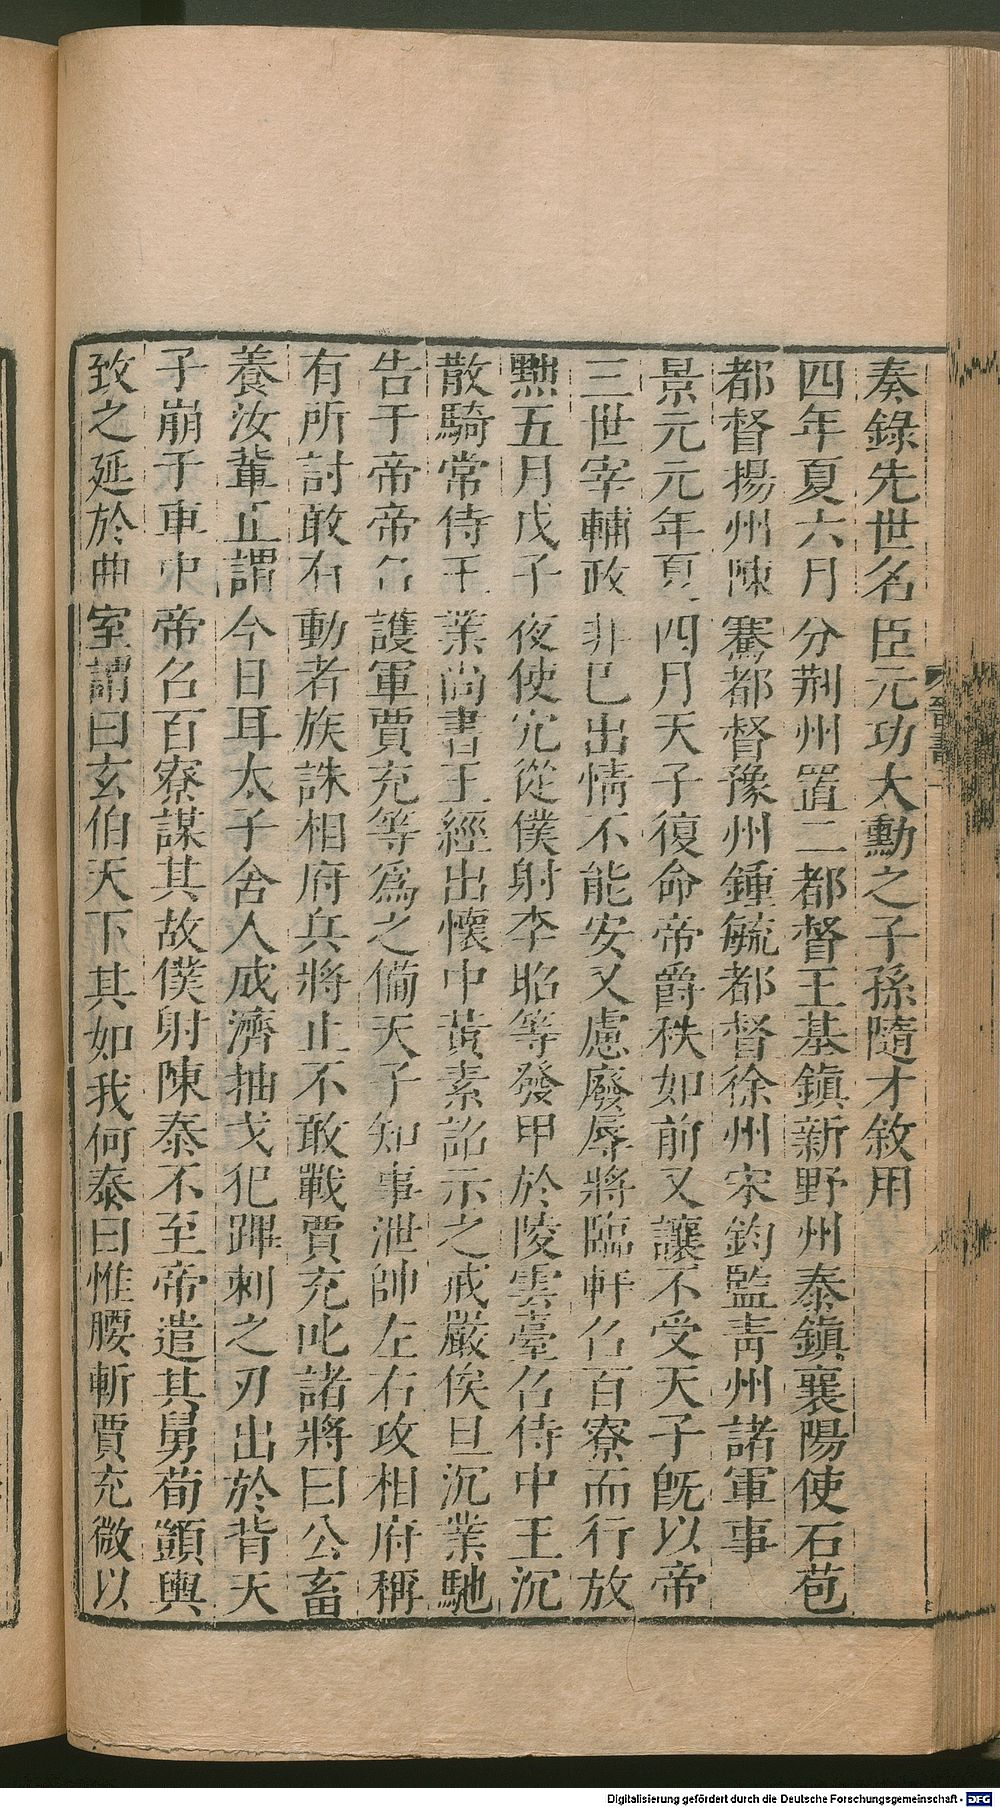 奏錄先世名臣元功大勳之子孫隨才敘用
四年夏六月分荆州置二都督王基鎮新野州泰鎮襄陽使石苞
都督揚州陳騫都督豫州鍾毓都督徐州宋鈞監靑州諸軍事
景元元年夏四月天子復命帝爵秩如前又讓不受天子旣以帝
三世宰輔政非己出情不能安又慮廢辱將臨軒召百寮而行放
黜五月戊子夜使冗從僕射李昭等發甲於陵雲臺召侍中王沉
散騎常侍王業尚書王經出懷中黃素詔示之戒嚴俟旦沉業馳
告于帝帝召護軍賈充等爲之備天子知事泄帥左右攻相府稱
有所討敢有動者族誅相府兵將止不敢戰賈充叱諸將曰公畜
養汝輩正謂今日耳太子舍人成濟抽戈犯蹕刺之刃出於背天
子崩于車中帝召百寮謀其故僕射陳泰不至帝遣其舅荀顗輿
致之延於曲室謂曰玄伯天下其如我何泰曰惟腰斬賈充微以
晉書一
Digitalisierung gefördert durch die Deutsche Forschungsgemeinschaft - DFG